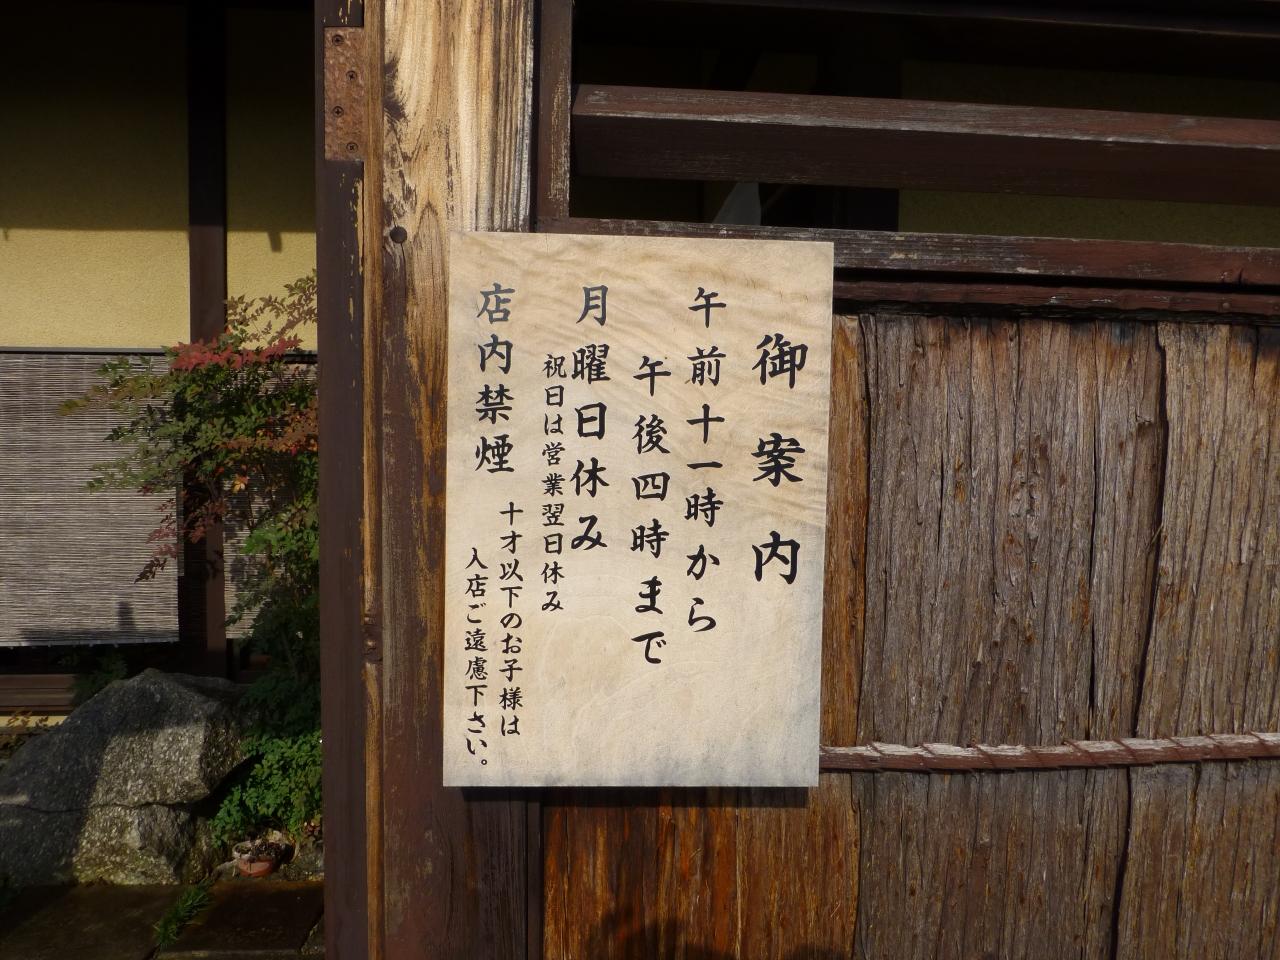 御案内
午前十一時から
午後四時まで
月曜日休み
祝日は営業翌日休み
店内禁煙
十才以下のお子様は
入店ご遠慮下さい。